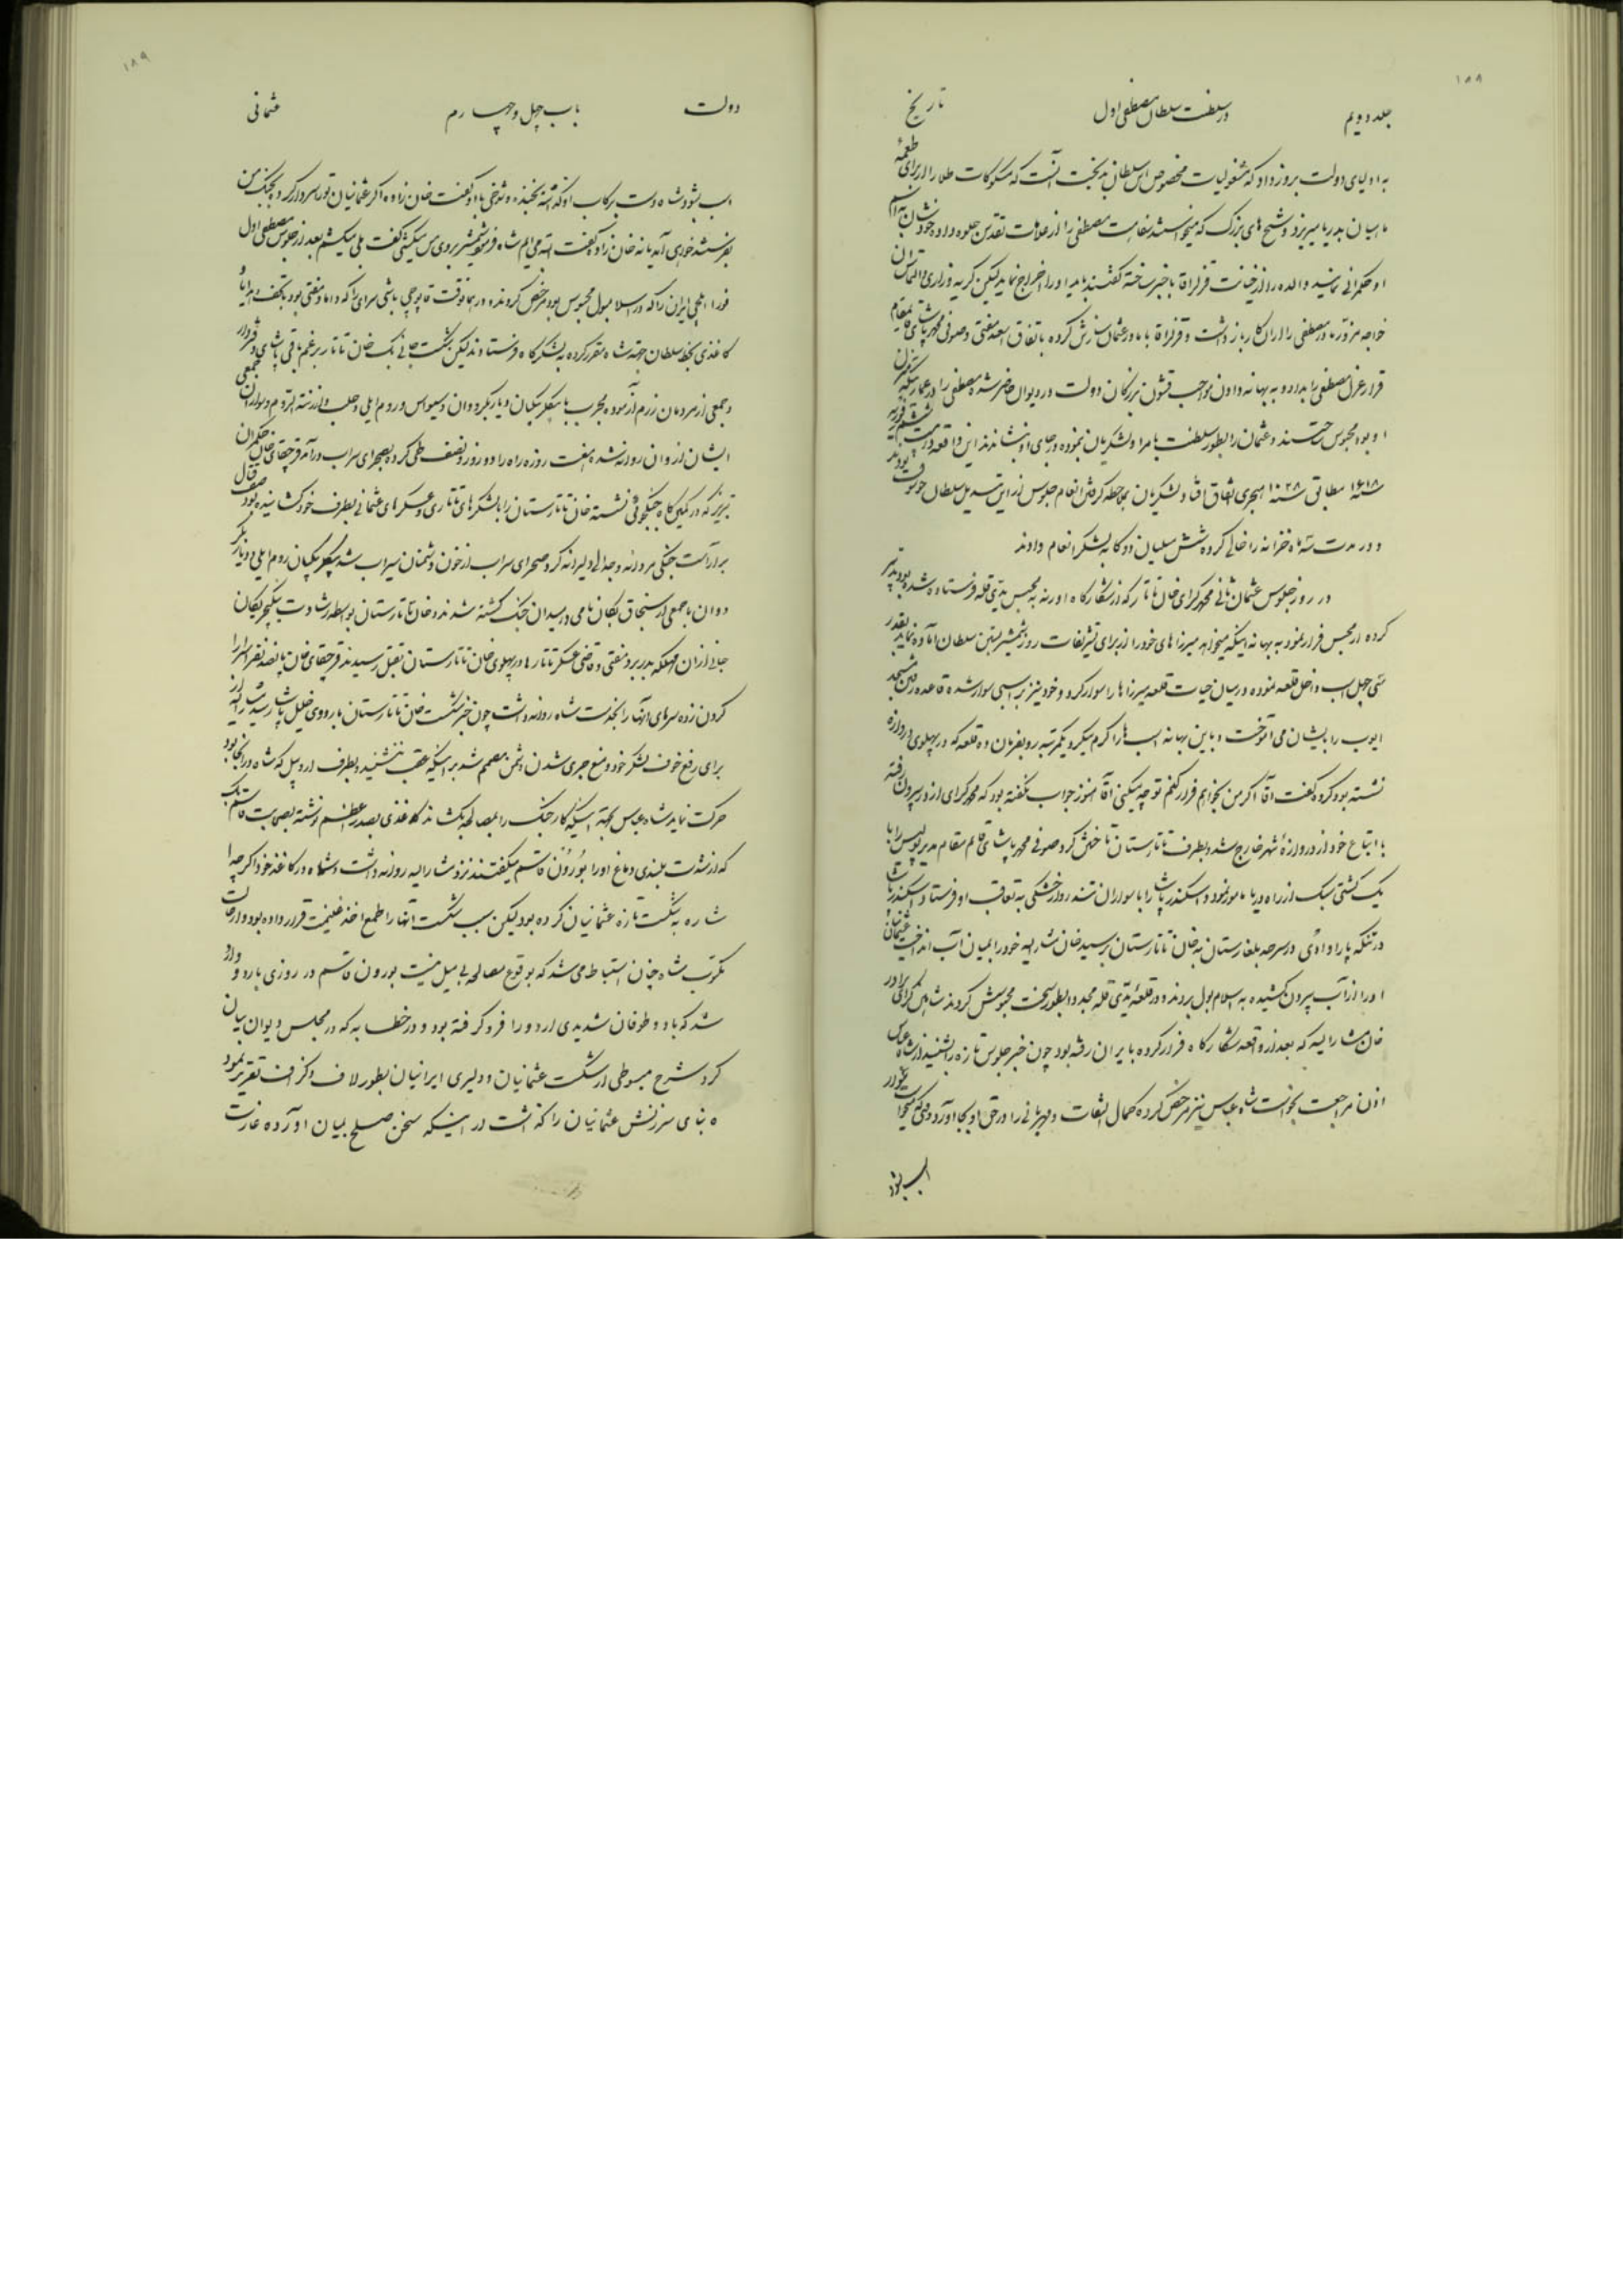 ۱۸۸
جلد دویم در سلطنت سلطان مصطفی اول تاریخ
به اولیای دولت بروز داد که مشغولیات مخصوص این سلطان بدبخت آنست که مسکوکات طلا را از برای طعمه
ماهیان بدریا میریزد و شیخ های بزرگ که میخواستند سفاهت مصطفی را از علامات تقدس جلوه داده خودشان به اسم
او حکمرانی نمایند والده را از خیانت قزلر آقا با خبر ساخته گفتند باید او را اخراج نماید لیکن گریه و زاری و التماس آن
خواجه مزور مادر مصطفی را از آن کار باز داشت و قزلر آقا با مادر عثمان سازش کرده باتفاق اسعد مفتی و صوفی محمد پاشای قایمقام
قرار عزل مصطفی را بداد و به بهانه دادن مواجب قشون بزرگان دولت در دیوان حاضر شده مصطفی را در عمارتیکه منزل
او بود محبوس ساختند و عثمان را بطور سلطنت بامرا و لشکریان نموده در جای او بنشاندند این واقعه در بیست و ششم فوریه
سنه ۱۶۱۸ مطابق سنه ۱۰۲۸ هجری اتفاق افتاد و لشکریان بملاحظه گرفتن انعام جلوس از این تبدیل سلطان خوشوقت بودند
و در مدت سه ماه خزانه را خالی کرده شش ملیان دوکا به لشکر انعام دادند
در روز جلوس عثمان ثانی محمد گرای خان تاتار که از شکارگاه اورنه به محبس یدی قله فرستاده شده بود تدبیر
کرده از محبس فرار نمود به بهانه اینکه میخواهد میرزا های خود را از برای تشریفات روز شمشیر بستن سلطان آماده نماید بقدر
سی چهل اسب داخل قلعه نموده در میان حیات قلعه میرزا ها را سوار کرد و خود نیز بر اسبی سوار شده قاعده رفتن مسجد
ایوب را بایشان می آموخت و باین بهانه اسب ها را گرم میکرد یکمرتبه رو بفرمان ده قلعه که در پهلوی دروازه
نشسته بود کرد و گفت آقا اگر من بخواهم فرار کنم تو چه میکنی آقا هنوز جواب نگفته بود که محمد گرای از در بیرون رفته
با اتباع خود از دروازهٔ شهر خارج شد و بطرف تاتارستان تاختن کرد صوفی محمد پاشای قایم مقام مدیر پلیس را با
یک کشتی سبک از راه دریا مامور نمود و اسکندر پاشا را با سواران تندرو از خشکی به تعاقب او فرستاد اسکندر پاشا
در تنگه پاراوادی در سرحد بلغارستان به خان تاتارستان برسید خان مشار الیه خود را بمیان آب انداخت عثمانیان
او را از آب بیرون کشیده به اسلامبول بردند و در قلعهٔ یدی قله مجددا بطور سخت محبوس کردند شاهین گرای برادر
خان مشار الیه که بعد از واقعه شکارگاه فرار کرده بایران رفته بود چون خبر جلوس تازه را بشنید از شاه عباس
اذن مراجعت بخواست شاه عباس نیز مرخص کرده کمال التفات و مهربانی را در حق او بجا آورد وقتیکه میخواست سوار
اسب شود
۱۸۹
دولت باب چهل و چهارم عثمانی
اسب بشود شاه دست برکاب او گذاشته بخنده و شوخی باو گفت خان زاده اگر عثمانیان تو را سردار کرده بجنگ من
بفرستند خواهی آمد یا نه خان زاده گفت البته می آیم شاه فرمود شمشیر بروی من میکشی گفت بلی میکشم بعد از جلوس مصطفی اول
فورا ایلچی ایران را که در اسلامبول محبوس بود مرخص کردند و در همانوقت قاپوچی باشی سرای را که داماد مفتی بود با تحف و هدایا و
کاغذی بخط سلطان بجهة شاه مقرر کرده به لشکرگاه فرستادند لیکن شکست جانی بک خان تاتار بر عزم باقی پاشای دفتردار
و جمعی از مردمان رزم آزموده مجرب با بیگلربیگیان دیاربکر و وان و سیواس و روم ایلی و حلب و ارزنة الروم و سواران جمعی
ایشان از وان روانه شده هفت روزه راه را دو روز و نصف طی کرده بصحرای سراب در آمد قرچقای خان حکمران
تبریز که در کمین گاه جنگجوئی نشسته خان تاتارستان را با لشکرهای تاتاری و عسکرهای عثمانی بطرف خود کشانیده بود صف قتال
بر آراست جنگی مردانه و جدالی دلیرانه کرد صحرای سراب از خون دشمنان سیراب شد بیگلربیگیان روم ایلی و دیاربکر
و وان با جمعی از سنجاق بیگان نامی در میدان جنگ کشته شدند و خان تاتارستان بواسطه رشادت ینگیچریکان
جانی از آن مهلکه بدر برد مفتی و قاضی عسکر تاتارها در پهلوی خان تاتارستان بقتل رسیدند قرچقای خان پانصد نفر اسرا را
گردن زده سرهای آنها را بخدمت شاه روانه داشت چون خبر شکست خان تاتارستان باردوی خلیل پاشا رسید مشار الیه از
برای رفع خوف لشکر خود و منع جری شدن دشمن مصمم شد بر اینکه عقب ننشیند و بطرف اردبیل که شاه در آنجا بود
حرکت نماید شاه عباس بجهة اینکه کار جنگ را بمصالحه بکشاند کاغذی بصدر اعظم نوشته بصحابت قاسم بک
که از شدت بلندی دماغ او را بورون قاسم میگفتند نزد مشار الیه روانه داشت و شاه در کاغذ خود اگر چه اشاره
به شکست تازه عثمانیان کرده بود لیکن سبب شکست آنها را طمع اخذ غنیمت قرار داده بود و از حالت
مکتوب شاه چنان استنباط می شد که بوقوع مصالحه بی میل نیست بورون قاسم در روزی بارد و وارد
شد که باد و طوفان شدیدی اردو را فرو گرفته بود و در خطابه که در مجلس دیوان بیان
کرد شرح مبسوطی از شکست عثمانیان و دلیری ایرانیان بطور لاف و گزاف تقریر نمود
بنای سرزنش عثمانیان را گذاشت در اینکه سخن صلح بمیان آورده غارت